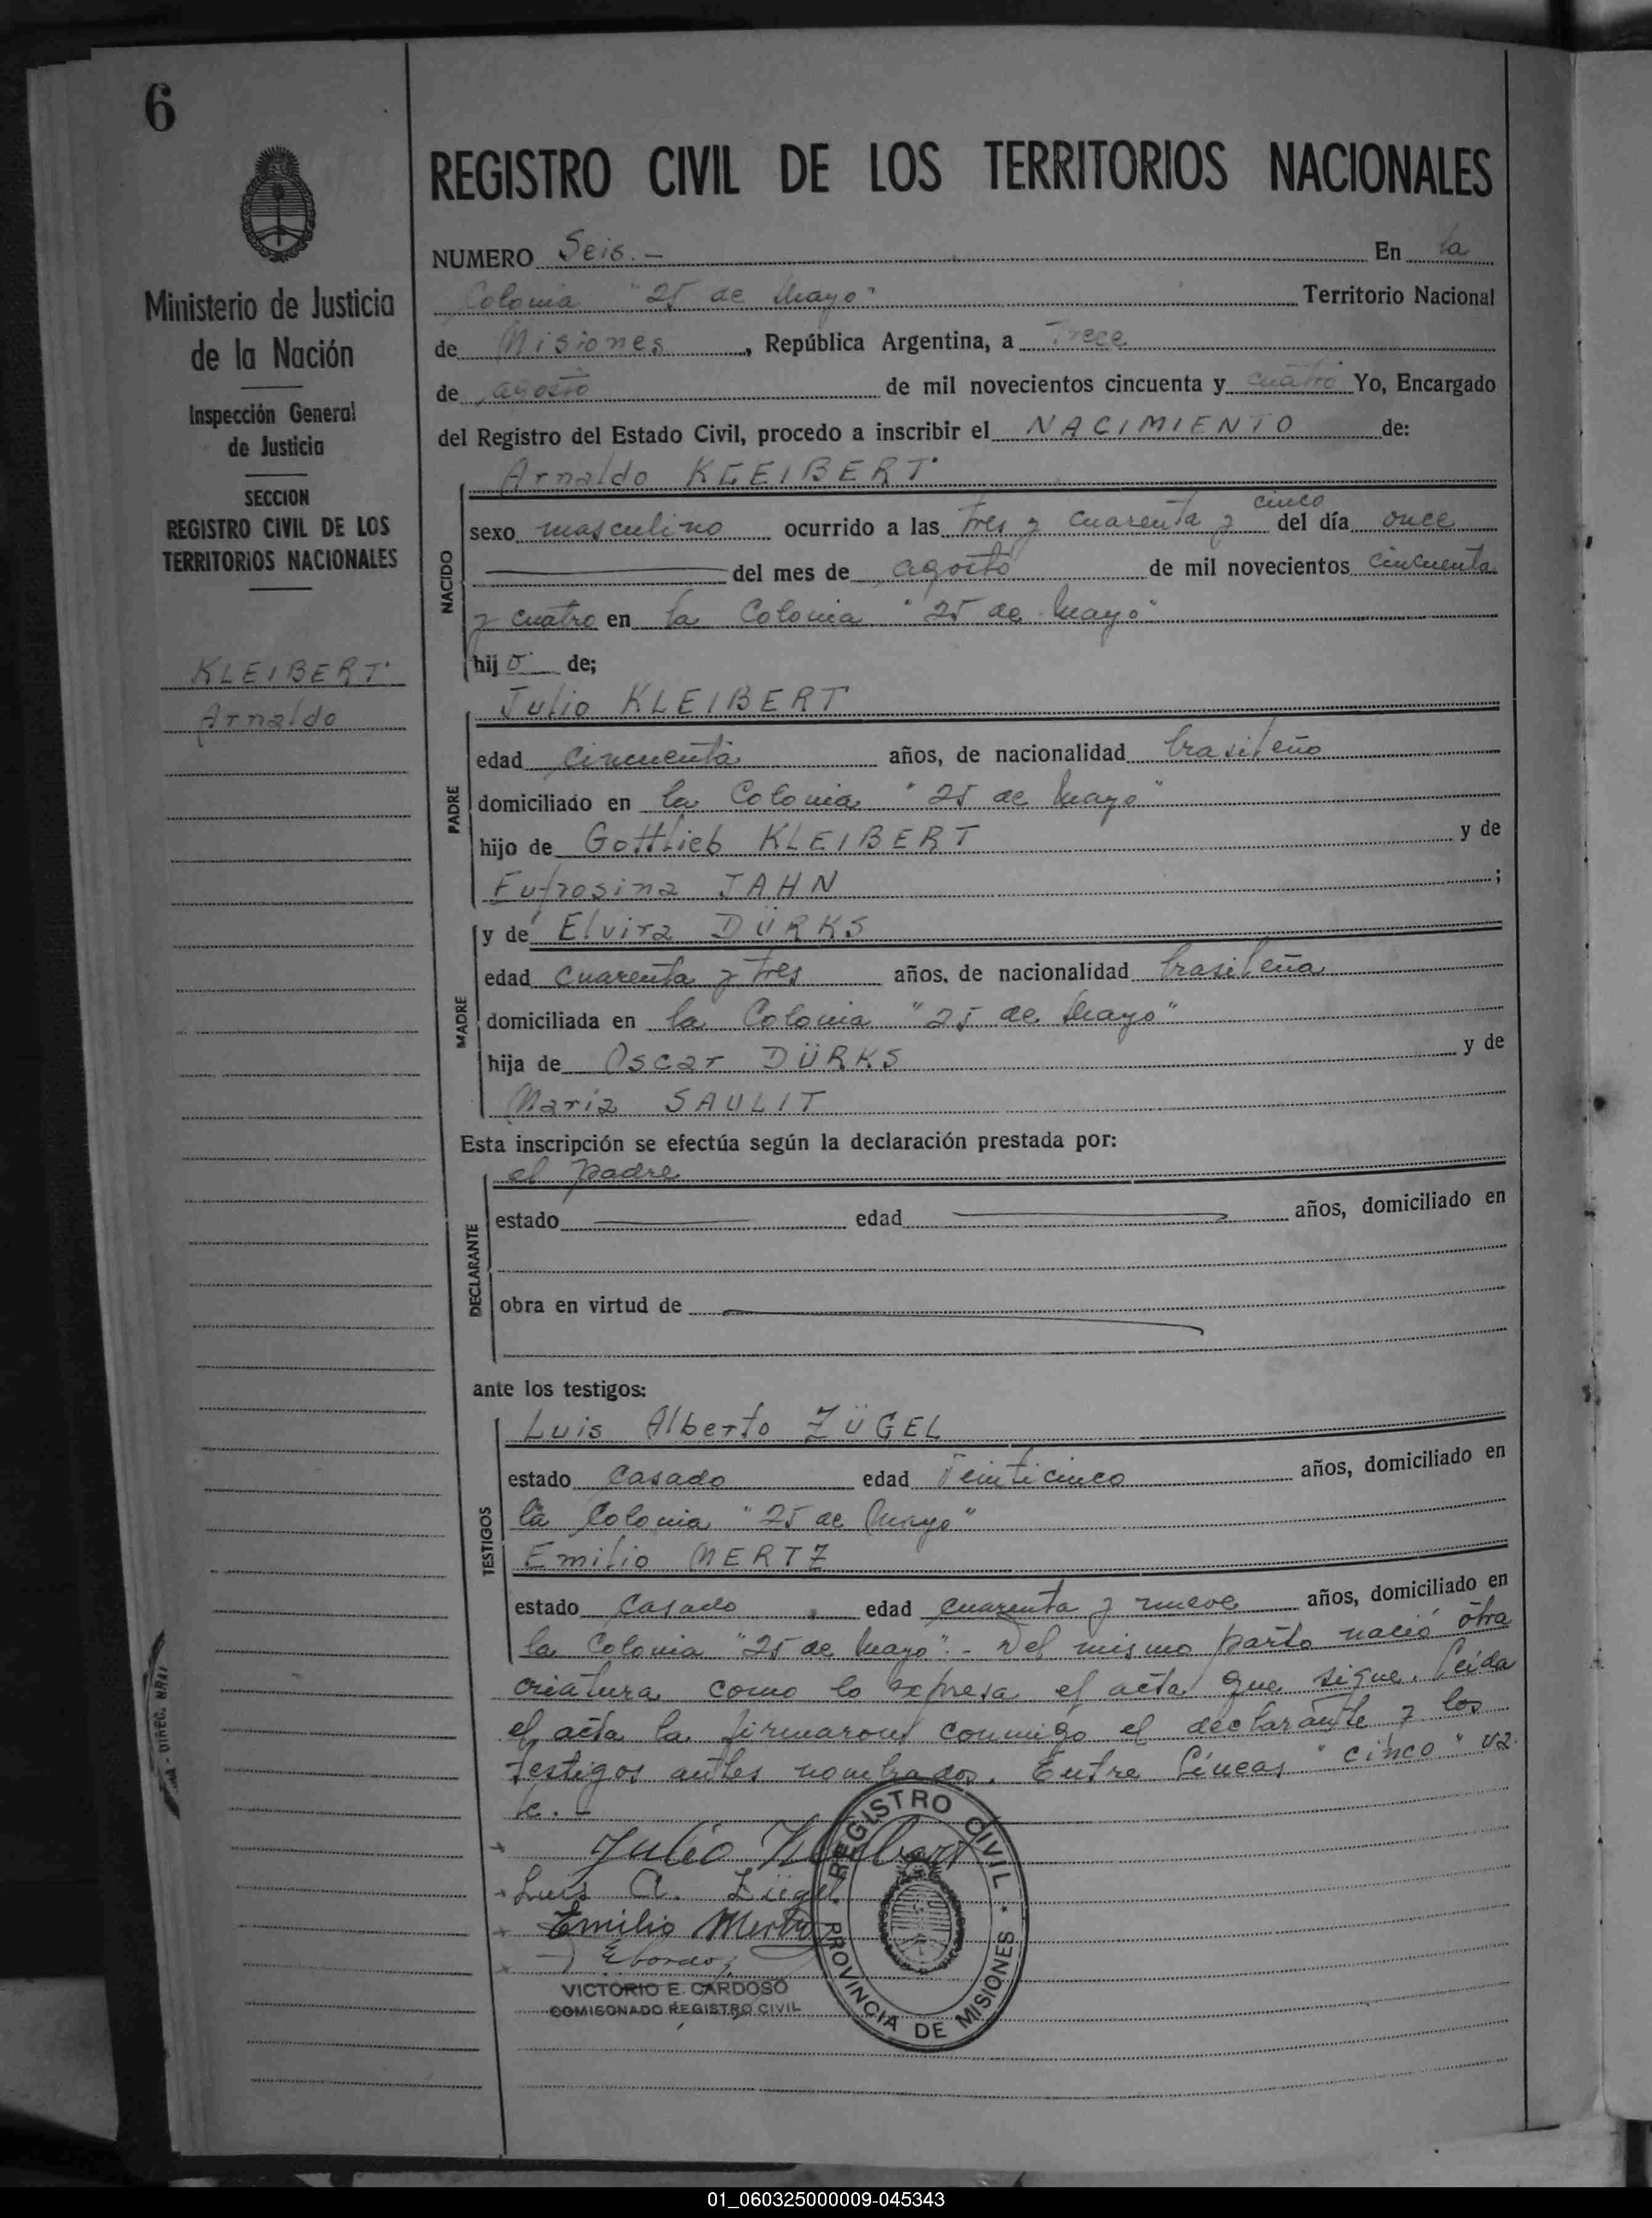 6
REGISTRO CIVIL DE LOS TERRITORIOS NACIONALES
Ministerio de Justicia
de la Nación
Inspección General
de Justicia
SECCION
REGISTRO CIVIL DE LOS
TERRITORIOS NACIONALES
KLEIBERT
Arnaldo
NUMERO Seis.- En la
Colonia "25 de Mayo" Territorio Nacional
de Misiones, República Argentina, a Trece
de agosto de mil novecientos cincuenta y cuatro Yo, Encargado
del Registro del Estado Civil, procedo a inscribir el NACIMIENTO de:
NACIDO
Arnaldo KLEIBERT
cinco
sexo masculino ocurrido a las tres y cuarenta y del día once
del mes de agosto de mil novecientos cincuenta
y cuatro en la Colonia "25 de Mayo"
hijo de;
PADRE
Julio KLEIBERT
edad cincuenta años, de nacionalidad brasileño
domiciliado en la Colonia "25 de Mayo"
hijo de Gottlieb KLEIBERT y de
Eufrosina JAHN ;
MADRE
y de Elvira DÜRKS
edad cuarenta y tres años, de nacionalidad brasileña
domiciliada en la Colonia "25 de Mayo"
hija de Oscar DÜRKS y de
Maria SAULIT
Esta inscripción se efectúa según la declaración prestada por:
DECLARANTE
el padre
estado edad años, domiciliado en
obra en virtud de
ante los testigos:
TESTIGOS
Luis Alberto ZÜGEL
estado casado edad veinticinco años, domiciliado en
la Colonia "25 de Mayo"
Emilio MERTZ
estado casado edad cuarenta y nueve años, domiciliado en
la Colonia "25 de Mayo".- Del mismo parto nació otra
criatura como lo expresa el acta que sigue. Leída
el acta la firmaron conmigo el declarante y los
testigos antes nombrados. Entre líneas "cinco" va
le.-
Julio Kleibert
Luis A. Zügel
Emilio Mertz
VICTORIO E. CARDOSO
COMISONADO REGISTRO CIVIL
REGISTRO CIVIL
PROVINCIA DE MISIONES
01_060325000009-045343